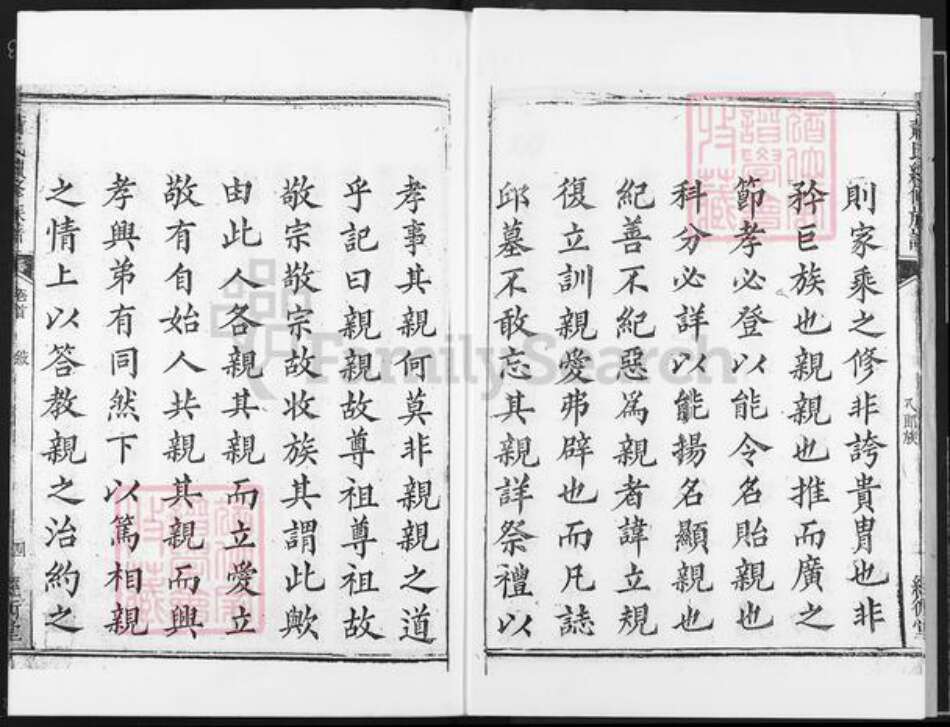 則家乘之修非誇貴胄也非
矜巨族也親親也推而廣之
節孝必登以能令名貽親也
科分必詳以能揚名顯親也
紀善不紀惡爲親者諱立規
復立訓親愛弗辟也而凡誌
邱墓不敢忘其親詳祭禮以
孝事其親何莫非親親之道
乎記曰親親故尊祖尊祖故
敬宗敬宗故收族其謂此歟
由此人各親其親而立愛立
敬有自始人共親其親而興
孝興弟有同然下以篤相親
之情上以答教親之治約之
卷首
FamilySearch